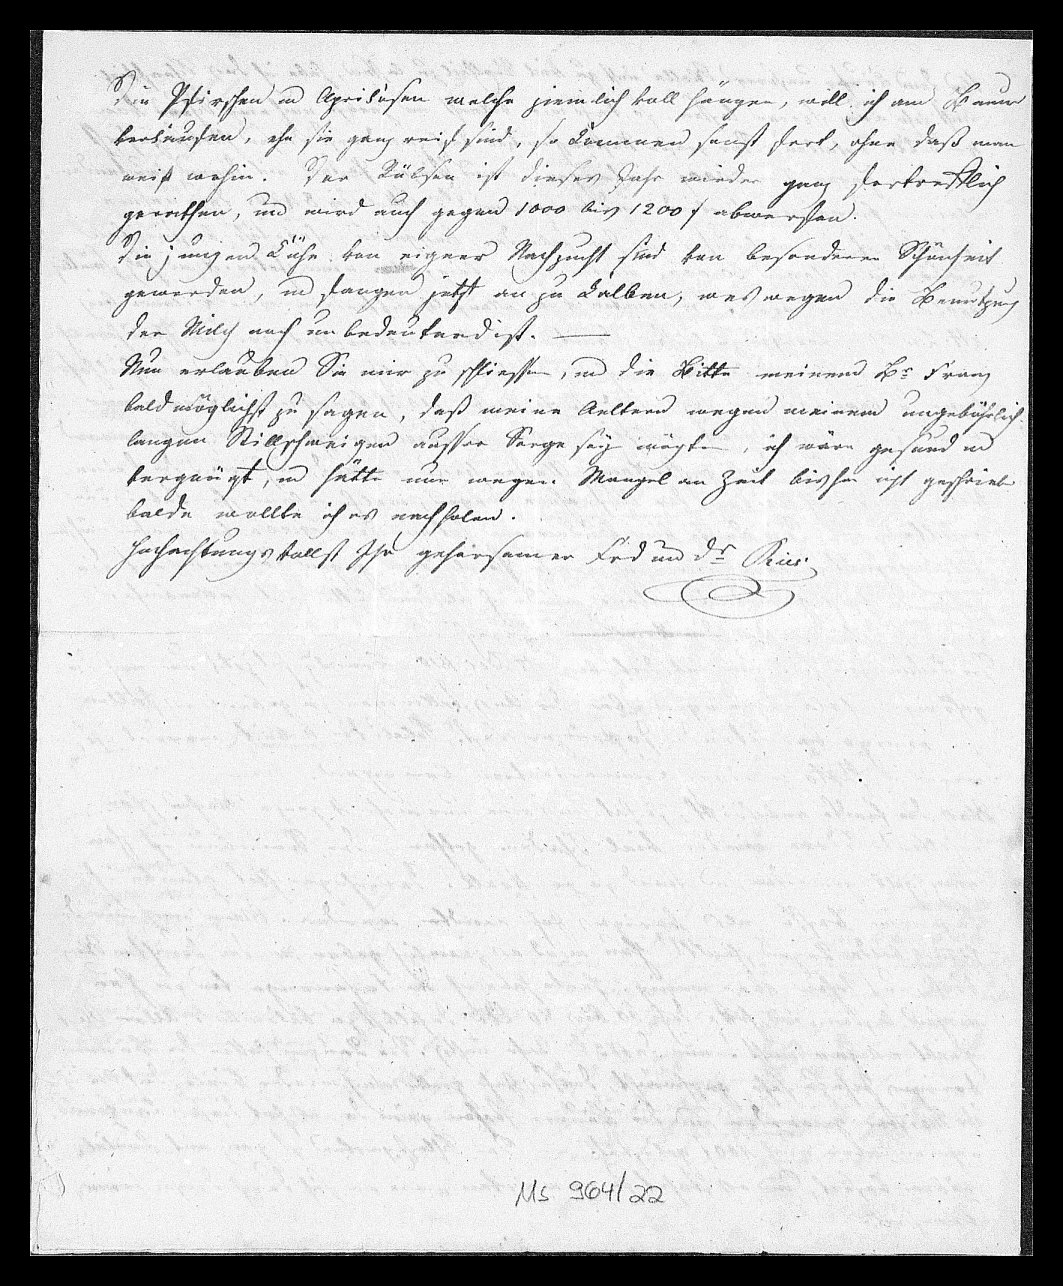 Die Pfirschen u Aprikosen welche ziemlich voll hängen, will ich am Baum
verkaufen, ehe sie ganz reif sind, so kommen sonst fort, ohne daß man
weiß wohin. Der Rübsen ist dieses Jahr wieder ganz vortrefflich
gerathen, und wird auch gegen 1000 bis 1200 f abwerfen.
Die jungen Kühe von eigner Nachzucht sind von besonderer Schönheit
geworden, u fangen jetzt an zu kalben, weswegen die Benutzung
der Milch noch unbedeutend ist. —
Nun erlauben Sie mir zu schliessen, u die Bitte meinem Br Franz
bald möglichst zu sagen, daß meine Aeltern wegen meinem ungebührlich
langen Stillschweigen ausser Sorge seyn mögten, ich wäre gesund u
vergnügt, u hätte nur wegen Mangel an Zeit bisher nicht geschrieben
balde wollte ich es nachholen.
Hochachtungsvollst Ihr gehorsamer Frd und Dr
Ms 964/22